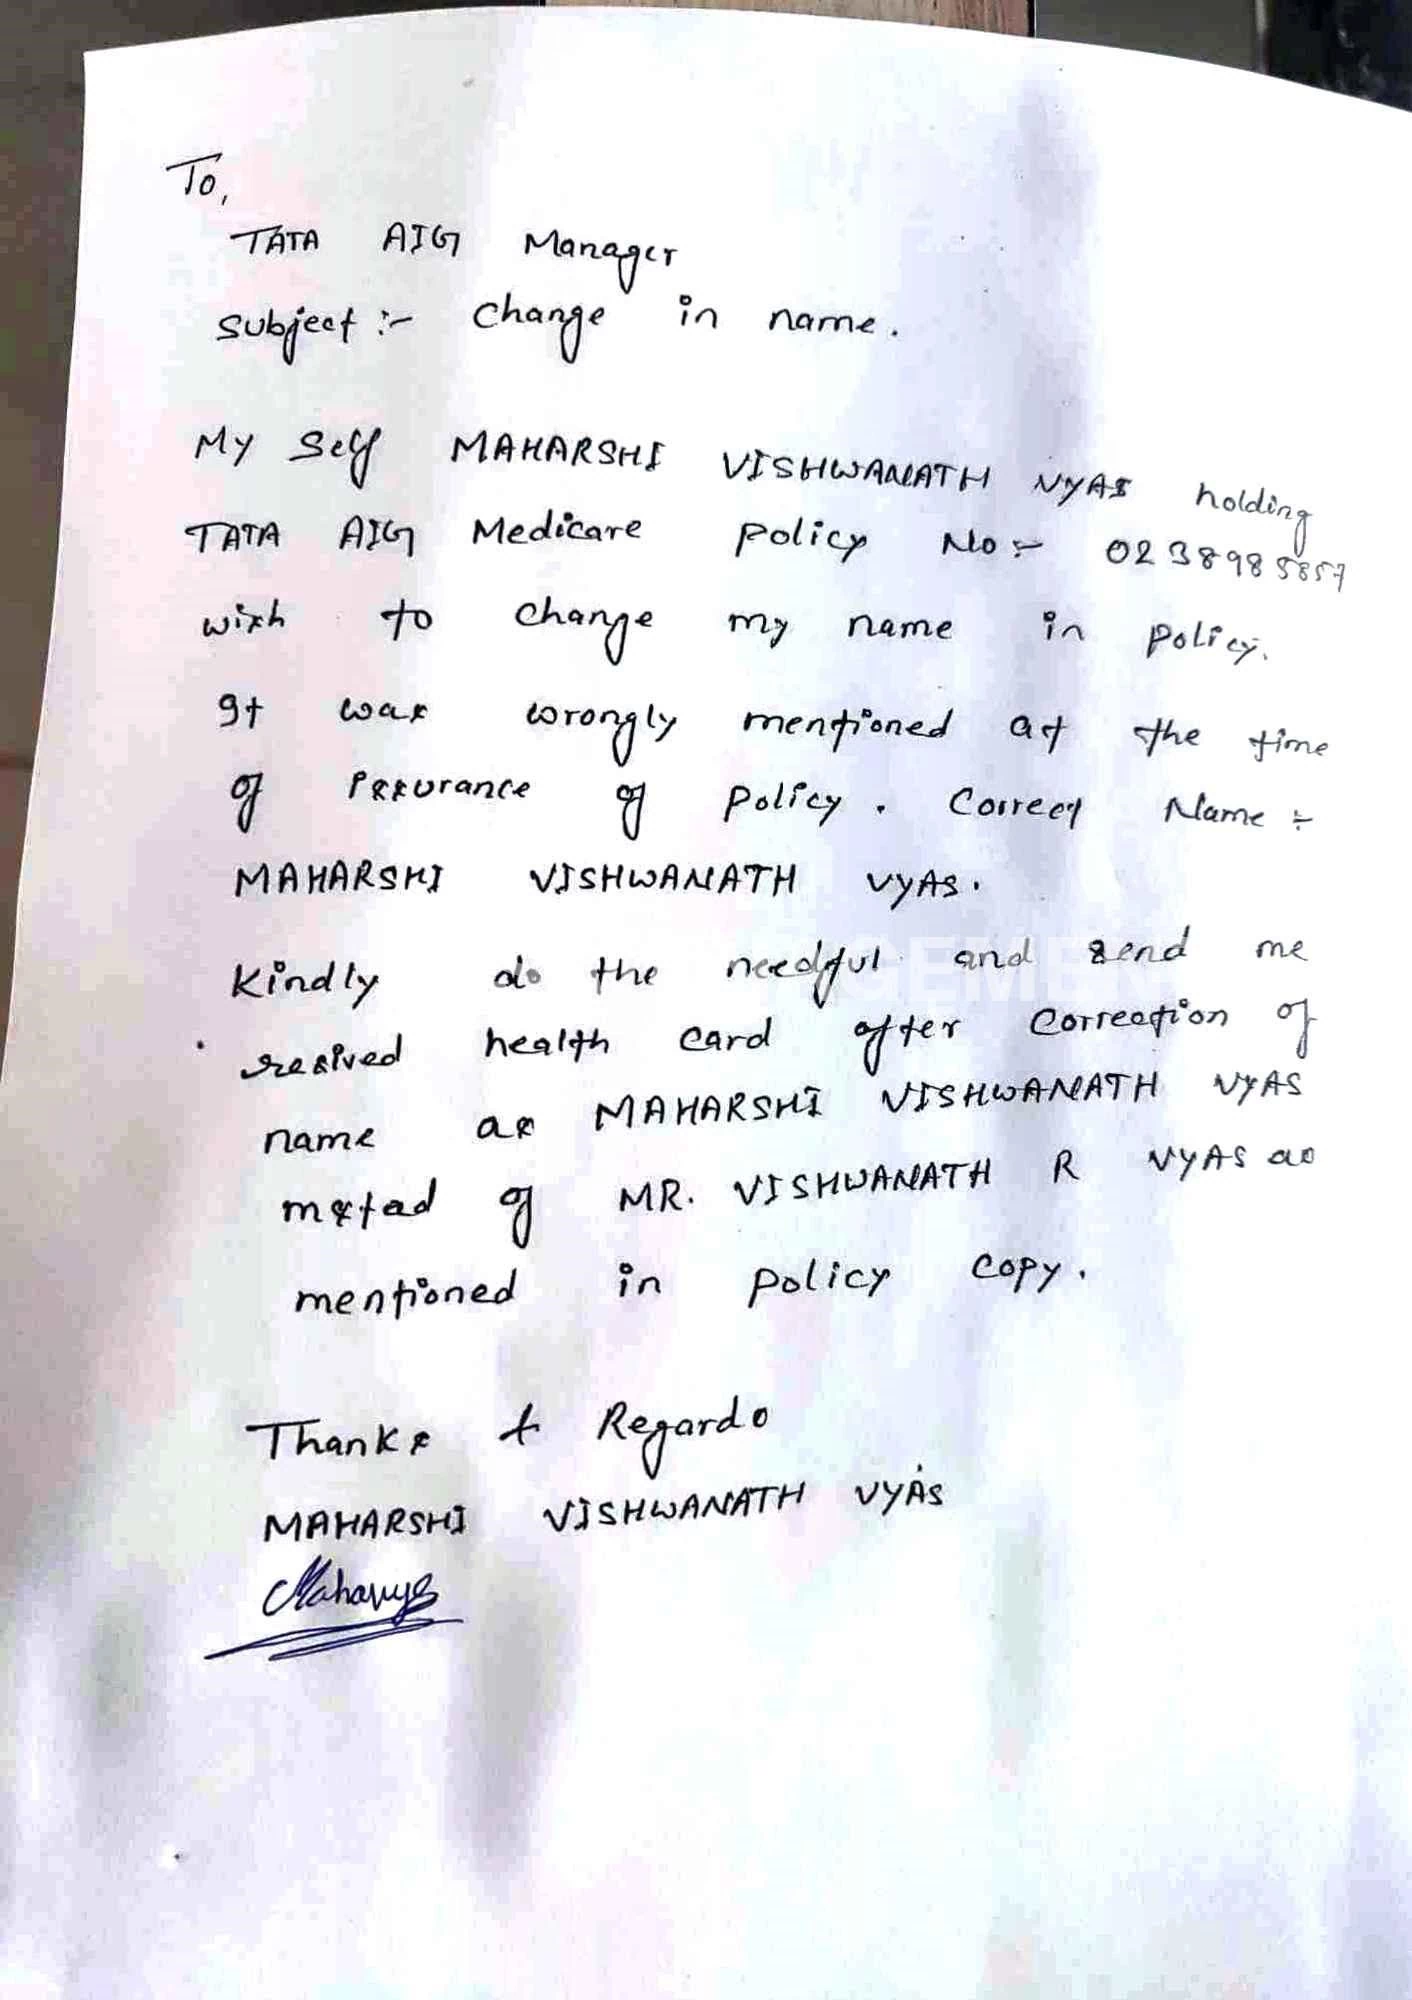 To,
TATA AIG Manager
Subject :- Change in name.
My Self MAHARSHI VISHWANATH VYAS holding
TATA AIG Medicare Policy No :- 0238985857
wish to change my name in policy.
It was wrongly mentioned at the time
of issurance of policy. Correct Name :-
MAHARSHI VISHWANATH VYAS.
Kindly do the needful and send me
health card after correction of
name as MAHARSHI VISHWANATH VYAS
of MR. VISHWANATH R VYAS as
mentioned in policy copy.
Thanks & Regards
MAHARSHI VISHWANATH VYAS
GEMEN